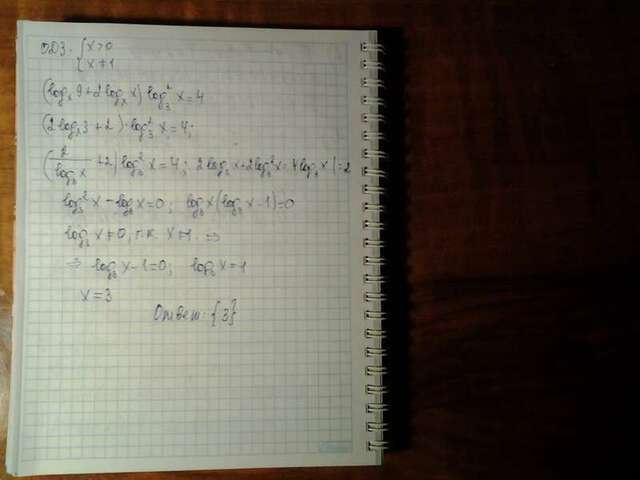 ОДЗ: { x>0
{ x≠1
(logₓ9+2logₓx)·log₃²x=4
(2logₓ3+2)·log₃²x=4;
(2/log₃x+2)log₃²x=4; 2log₃x+2log₃²x=4log₃x |:2
log₃²x-log₃x=0; log₃x(log₃x-1)=0
log₃x≠0, т.к. x≠1. ⇒
⇒ log₃x-1=0; log₃x=1
x=3
Ответ: {3}